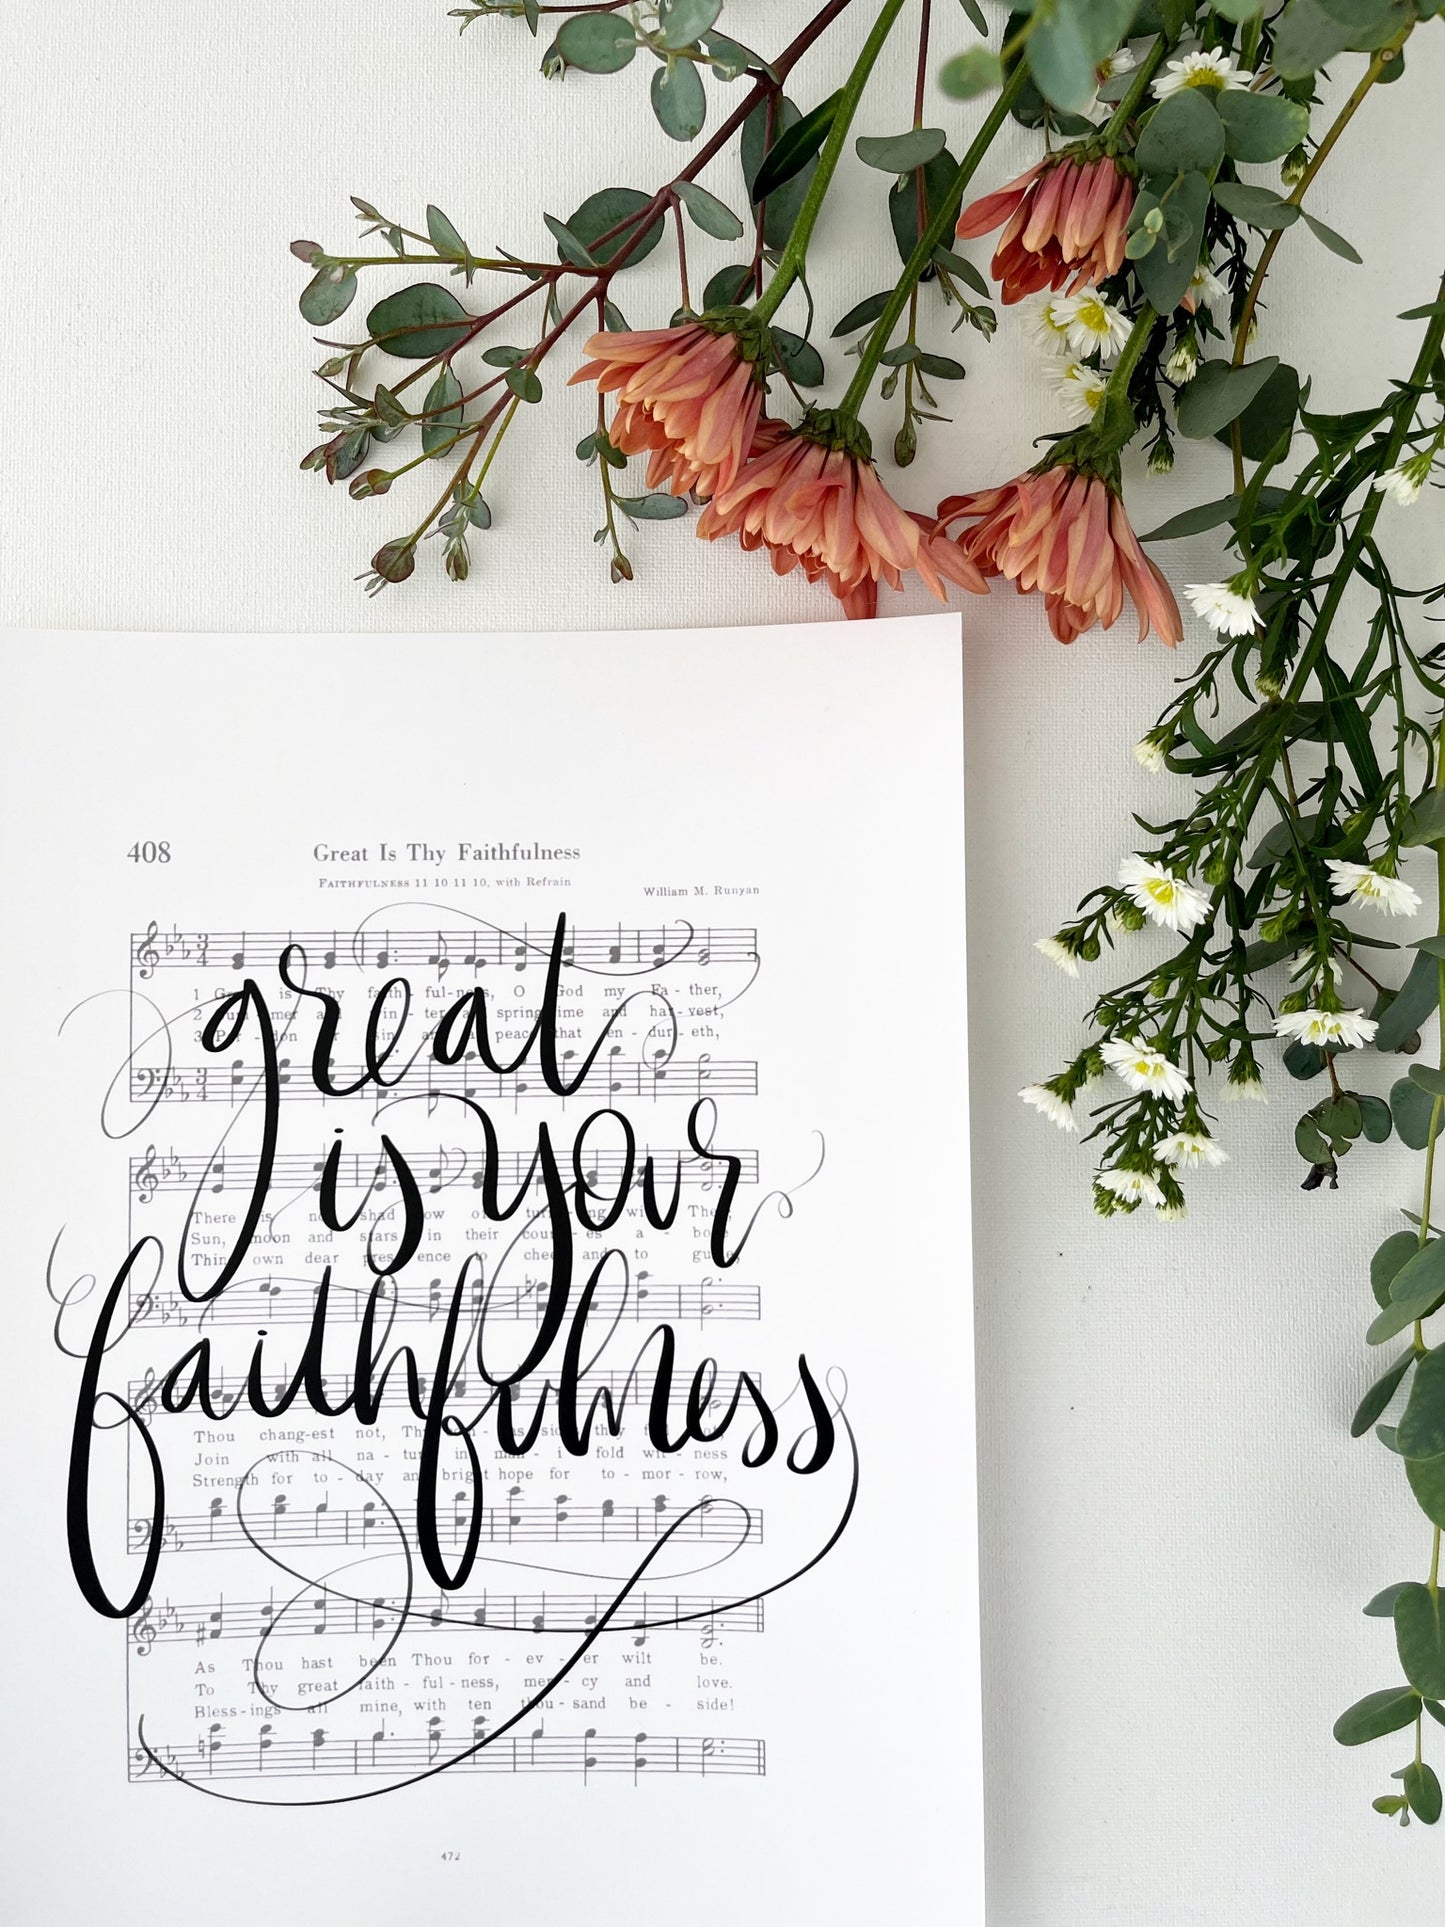 408 Great Is Thy Faithfulness
FAITHFULNESS 11 10 11 10, with Refrain
William M. Runyan
great
is your
faithfulness
1 is Thy faith - ful - ness, O God my Fa - ther,
2 mer and spring time and har - vest,
3 Par - don sin and peace that en - dur - eth,
There is no shad ow of turn - ing with Thee,
Sun, moon and stars in their cours - es a - bove
Thine own dear pres ence to cheer and to guide,
Thou chang-est not, Thy
Join with all na - ture in man - i fold wit - ness
Strength for to - day and bright hope for to - mor - row,
As Thou hast been Thou for - ev - er wilt be.
To Thy great faith - ful - ness, mer - cy and love.
Bless - ings all mine, with ten thou - sand be - side!
472